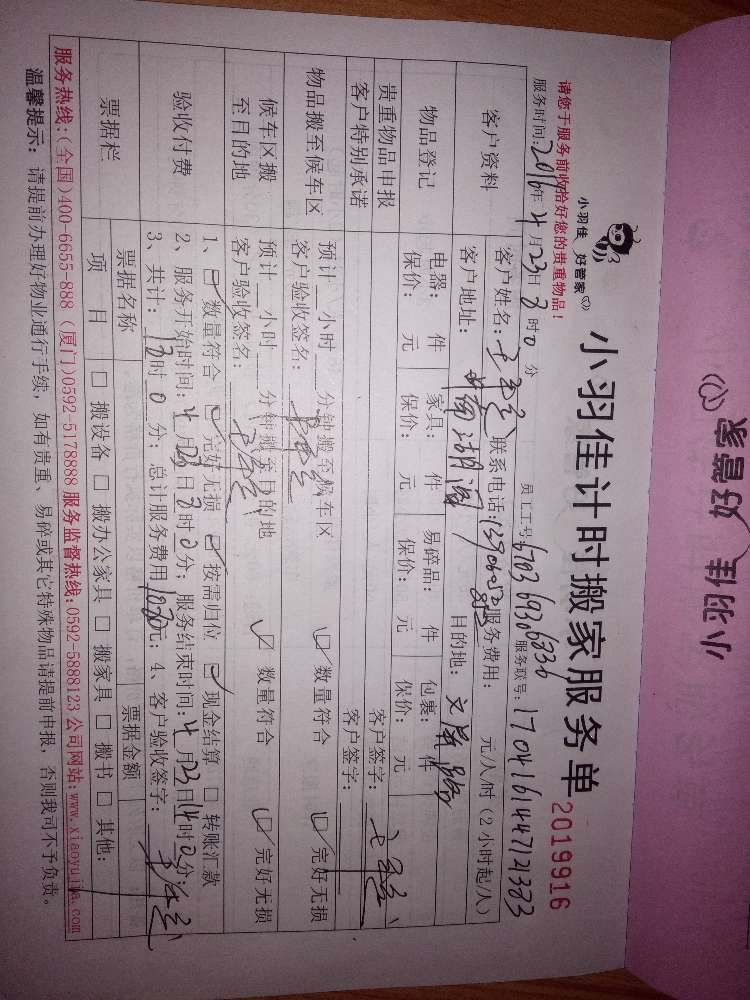 小羽佳 好管家
小羽佳 好管家
小羽佳计时搬家服务单
2019916
请您于服务前收拾好您的贵重物品!
员工工号: 6703 6936 6336
服务时间: 2016年4月23日8时0分
服务联号: 1704161447121383
客户资料
客户姓名: 联系电话: 服务费用: 元/人/时(2小时起/人)
客户地址: 目的地:
物品登记
电器: 件 家具: 件 易碎品: 件 包裹: 件
保价: 元 保价: 元 保价: 元 保价: 元
贵重物品申报 客户签字:
客户特别承诺 客户签字:
物品搬至候车区
预计 小时 分钟搬至候车区
客户验收签名: 数量符合 完好无损
候车区搬至目的地
预计 小时 分钟搬至目的地
客户验收签名: 数量符合 完好无损
验收付费
1、数量符合 完好无损 按需归位 现金结算 转账汇款
2、服务开始时间: 4月23日8时0分; 服务结束时间: 4月23日14时0分;
3、共计: 时0分; 总计服务费用 元; 4、客户验收签字:
票据栏
票据名称 票据金额
项目 搬设备 搬办公家具 搬家具 搬书 其他:
服务热线:(全国)400-6655-888 (厦门)0592-5178888 服务监督热线:0592-5888123 公司网站:www.xiaoyujia.com
温馨提示: 请提前办理好物业通行手续, 如有贵重、易碎或其它特殊物品请提前申报, 否则我司不予负责。